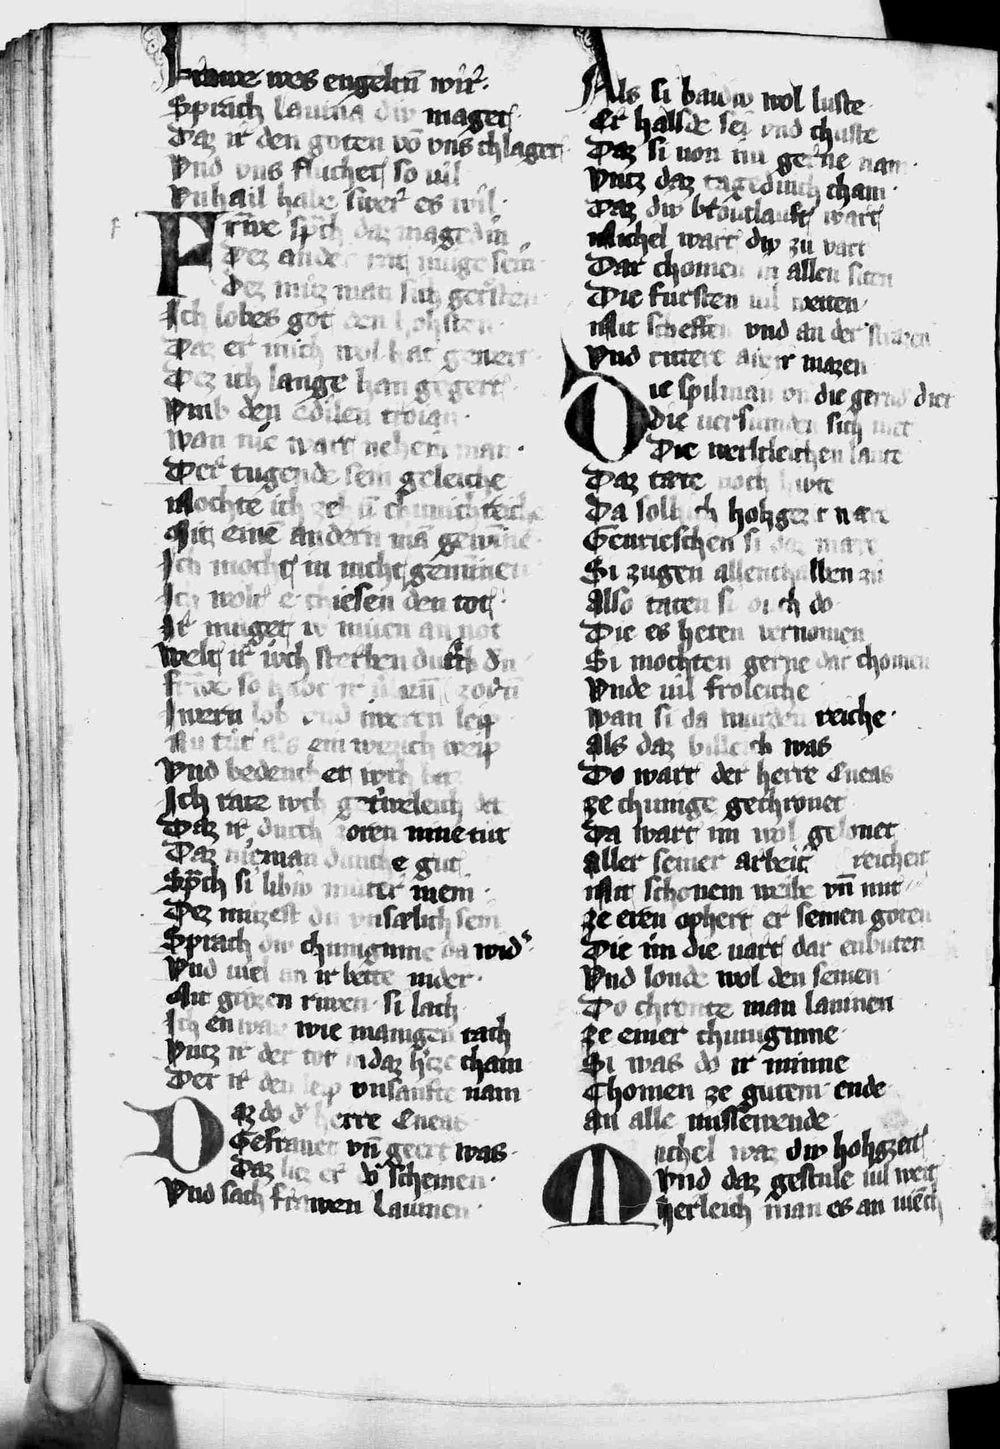 Frawe wes engelten wir
Sprach Lauina diw maget
Daz ir den goten vō vns chlaget
Vnd vns fluchet so uil
Vnhail habe swer es wil
Frawe sp̄ch daz magedin
Dez ander mit muge sein
Dez muz man sich getrosten
Ich lobes got den hohsten
Daz er mich wol hat gewert
Dez ich lange han gegert
Vmb den edilen troian
wan nie wart nehein man
Der tugende sein geleiche
Mochte ich zehn chunichreiche
Mit einē andern mā gewinne
Ich mocht in nicht geminnen
Ich wolt e chiesen den tot
Ir muget iv müen an not
Welt ir iuch sterben durch
frawe so habt ir verlorn
Iwern lob vnd iweren leip
Nu tut als ein weisich weip
Vnd bedenchet iwch baz
Ich rate iwch getriweleich daz
Daz ir durch zoren niene tut
Daz nieman dunche gut
Sp̄ch si libiw muter mein
Dez muzest du vnsælich sein
Sprach diw chuniginne da wider
Vnd uiel an ir bette nider
Mit grozen riwen si lach
Ich en waiz wie manigen tach
Vntz ir der tot in daz h'ze cham
Der ir den leip vnsanfte nam
Daz do d' herre Eneas
Gefrauet vn̄ geert was
Daz liez er do scheinen
Vnd sach frawen Lauinen
Als si baidiw wol luste
Er halsde sei vnd chuste
Daz si uon im gerne nam
Vntz daz tagedinch cham
Daz diw broutlauft wart
Michel wart diw zu vart
Dar chomen in allen siten
Die fursten uil weiten
Mit scheffen vnd an der strazen
Vnd ritere auzer mazen
Die spilman vn̄ die gernd diet
die uersumden sich niet
Die werltleichen laute
Daz tæte noch hiwte
Da solhich hohgezit wære
Geurieschen si daz mære
Si zugen allenthalben zu
Also taten si ouch do
Die es heten vernomen
Si mochten gerne dar chomen
Vnde uil froleiche
wan si da wurden reiche
Als daz billeich was
Do wart der herre Eneas
ze chunige gechronet
Da wart im wol gelonet
aller seiner arbeit reichen
Mit schonem weibe vn̄ mit
ze eren ophert er seinen goten
Die im die uart dar enbuten
Vnd londe wol den seinen
Do chronte man lauinen
ze einer chuniginne
Si was do ir minne
Chomen ze gutem ende
an alle missewende
Michel waz diw hohgzeit
vnd daz gestule uil weit
Herleich man es an wench